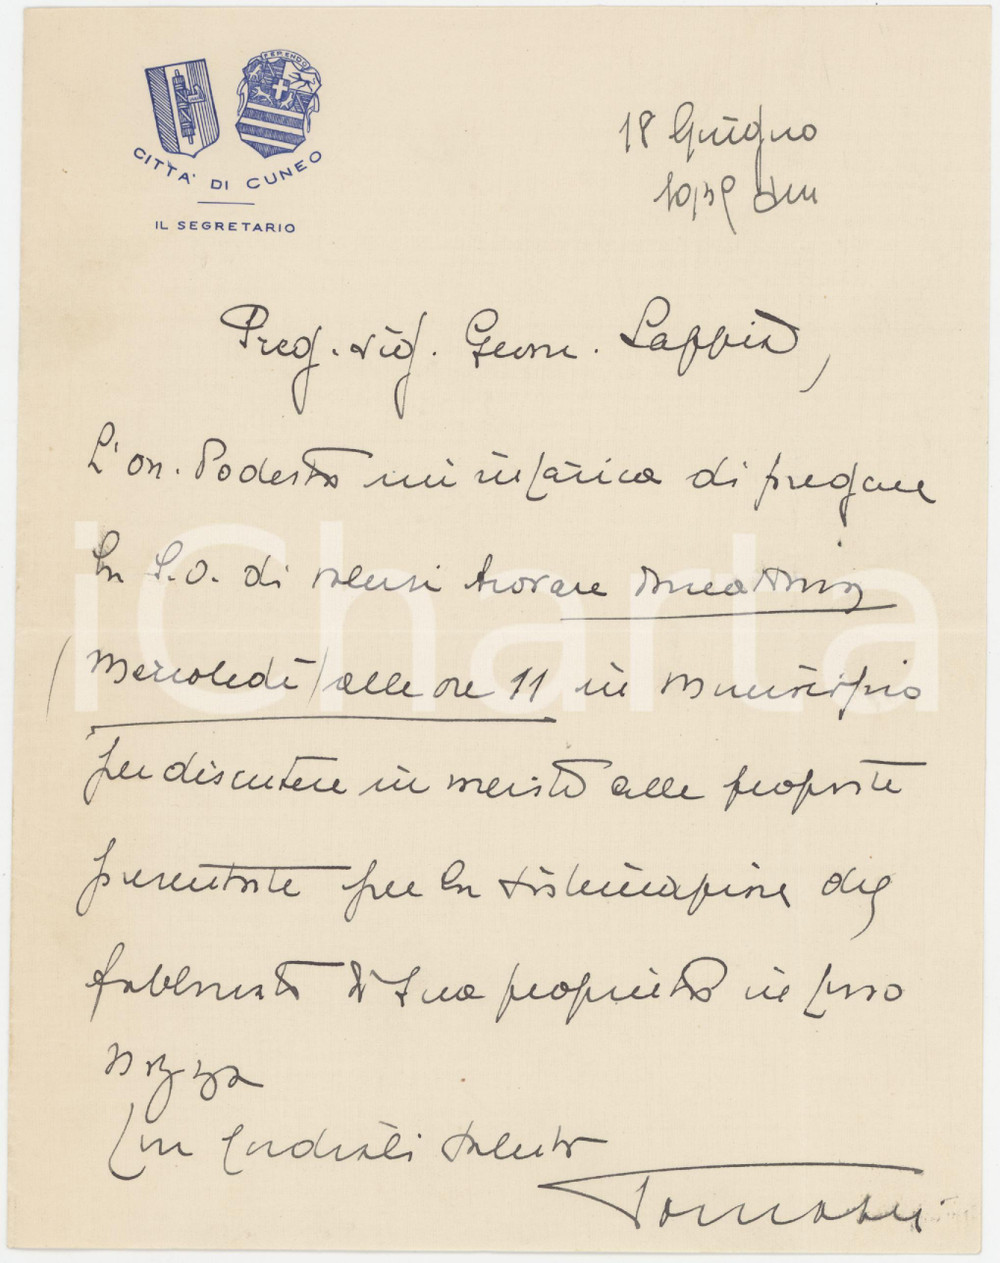 FERENDO
CITTA' DI CUNEO
IL SEGRETARIO
18 Giugno
Preg. sig. Geom. Sappia,
L'on. Podestà mi incarica di pregare
la S.O. di volersi trovare domattina
(Mercoledì) alle ore 11 in municipio
per discutere in merito alle proposte
presentate per la sistemazione del
fabbricato di Sua proprietà in corso
Nizza
Con cordiali saluti
iCharta